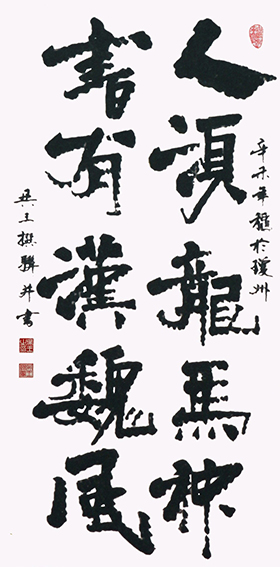 辛未年穐於瓊州
人須龍馬神
書有漢魏風
撰聯并書